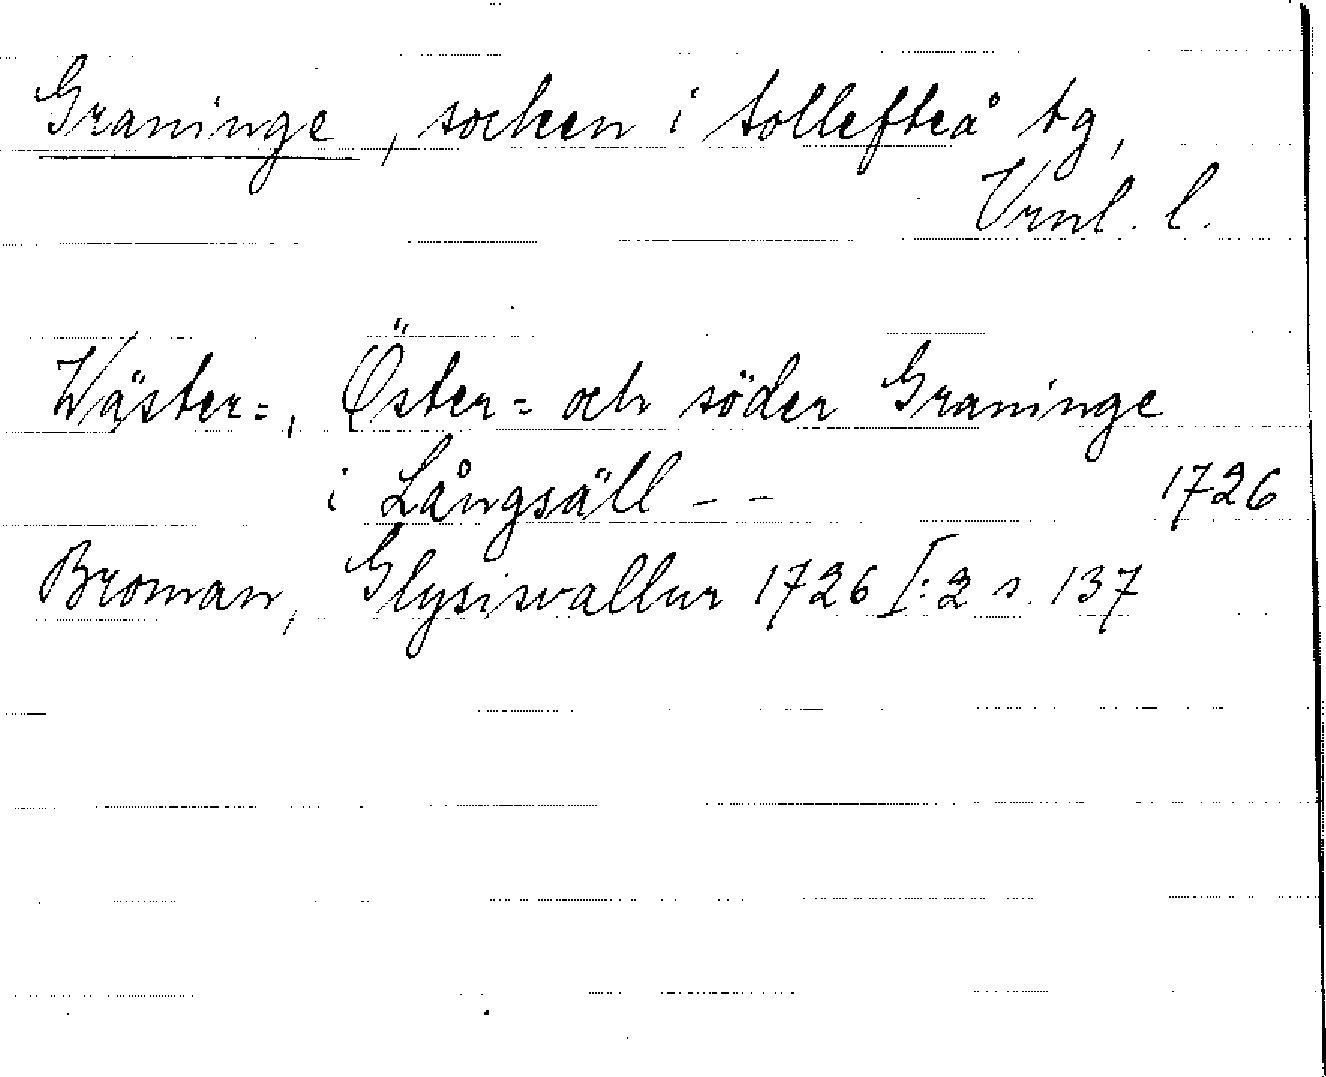 Graninge, socken i Sollefteå tg,
Vrnl. l.
Wäster=, Öster= och söder Graninge
i Långsäll - - 1726
Broman, Glysisvallur 1726 I:2 s. 137